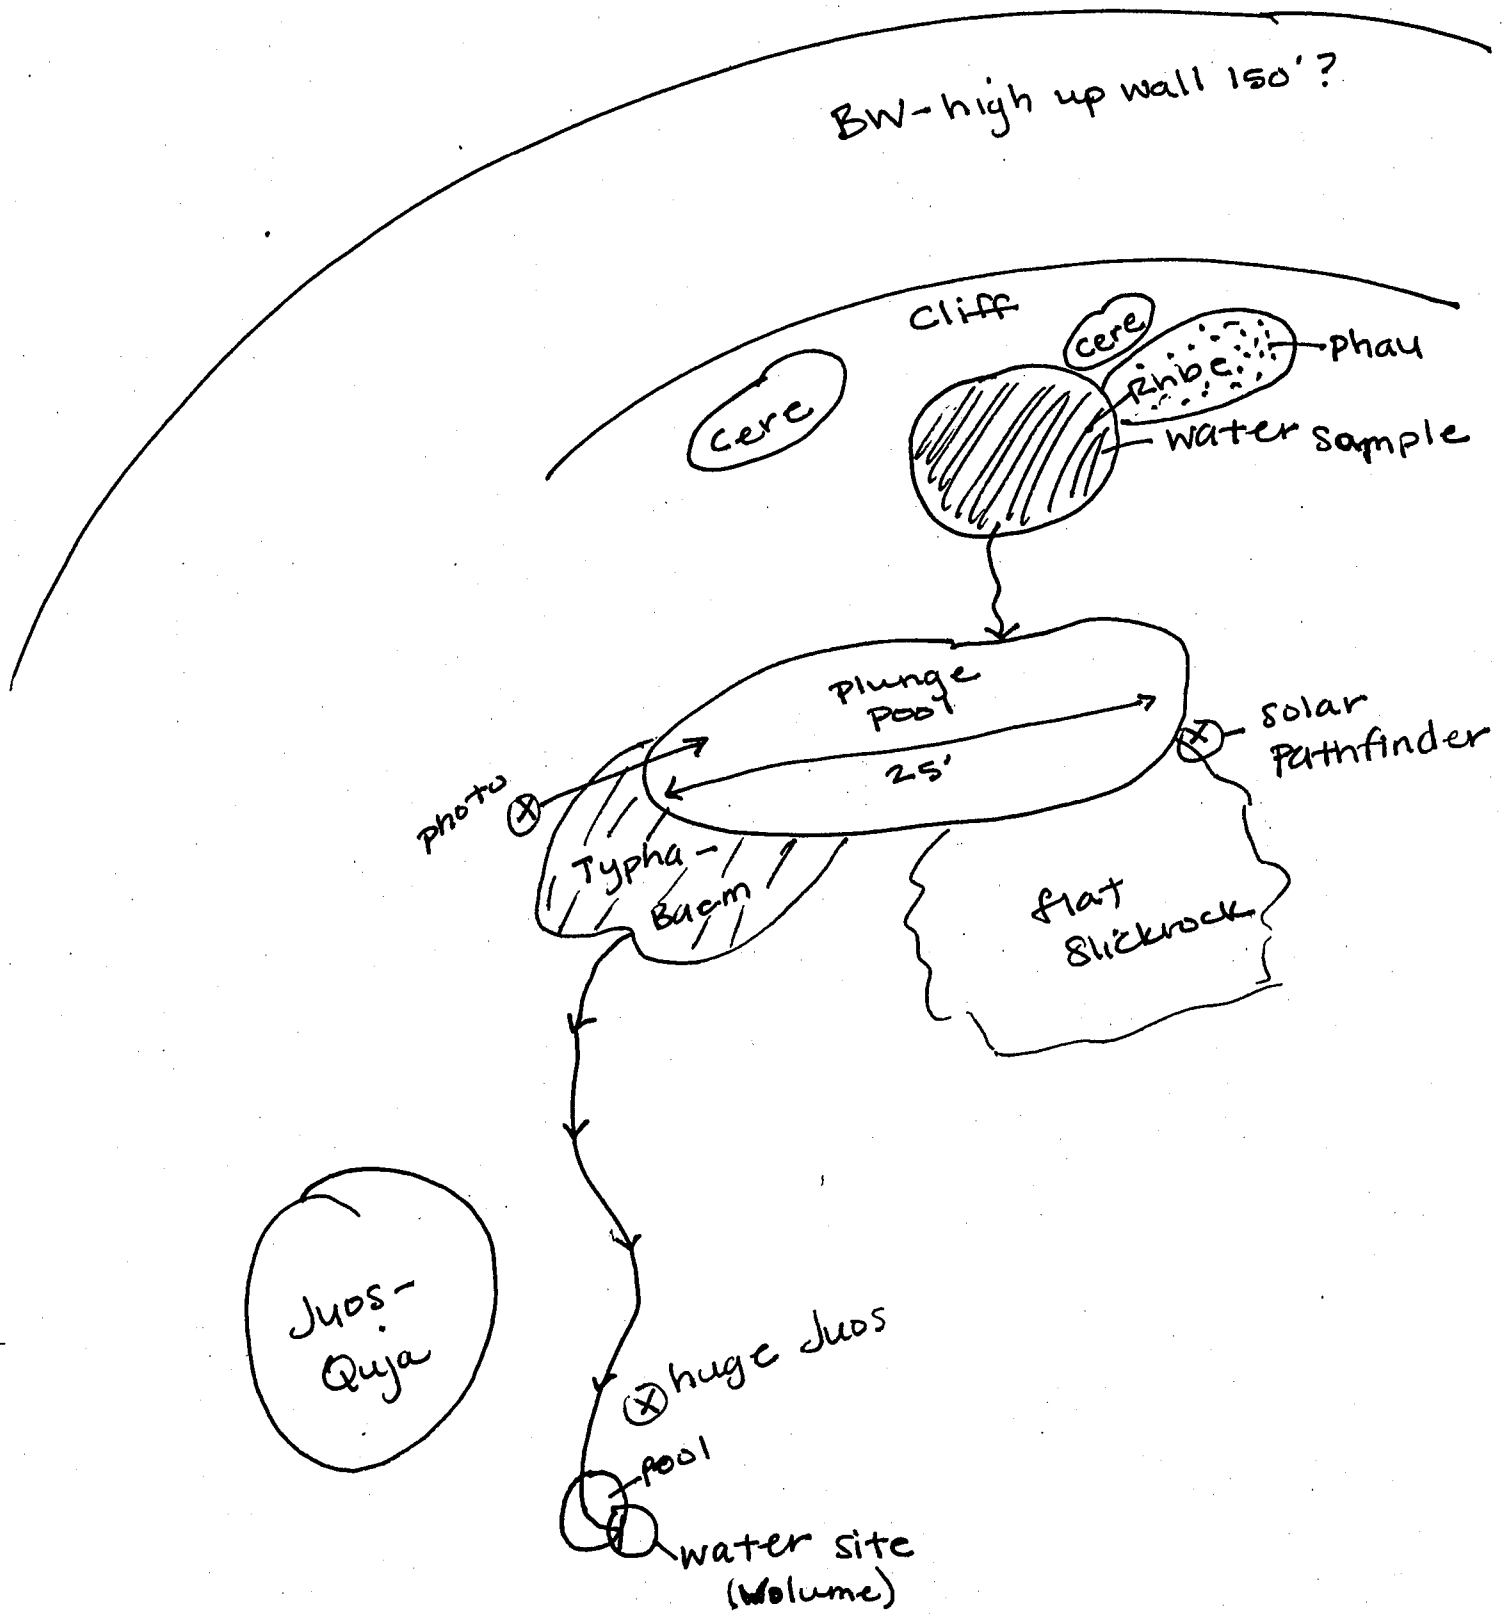 BW-high up wall 150'?
Cliff
cere
cere
Rhbe
Phau
water sample
plunge
pool
25'
solar
Pathfinder
photo
Typha-
Baem
flat
slickrock
Juos-
Quja
huge Juos
pool
water site
(Volume)